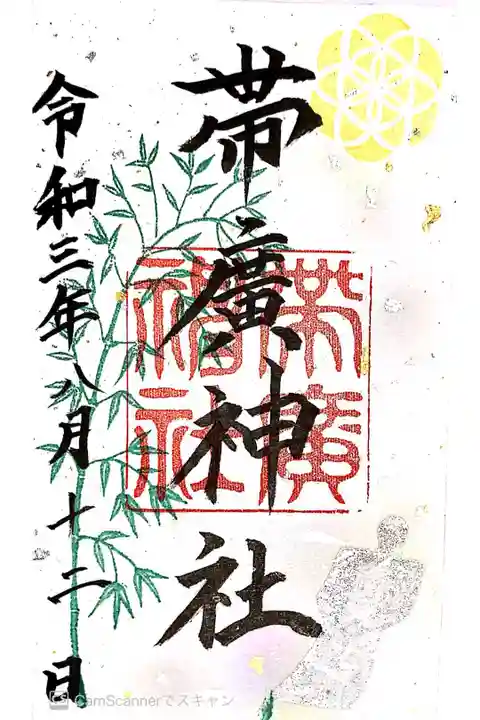 帯廣神社
帯廣
神社
令和三年八月十二日
CamScannerでスキャン